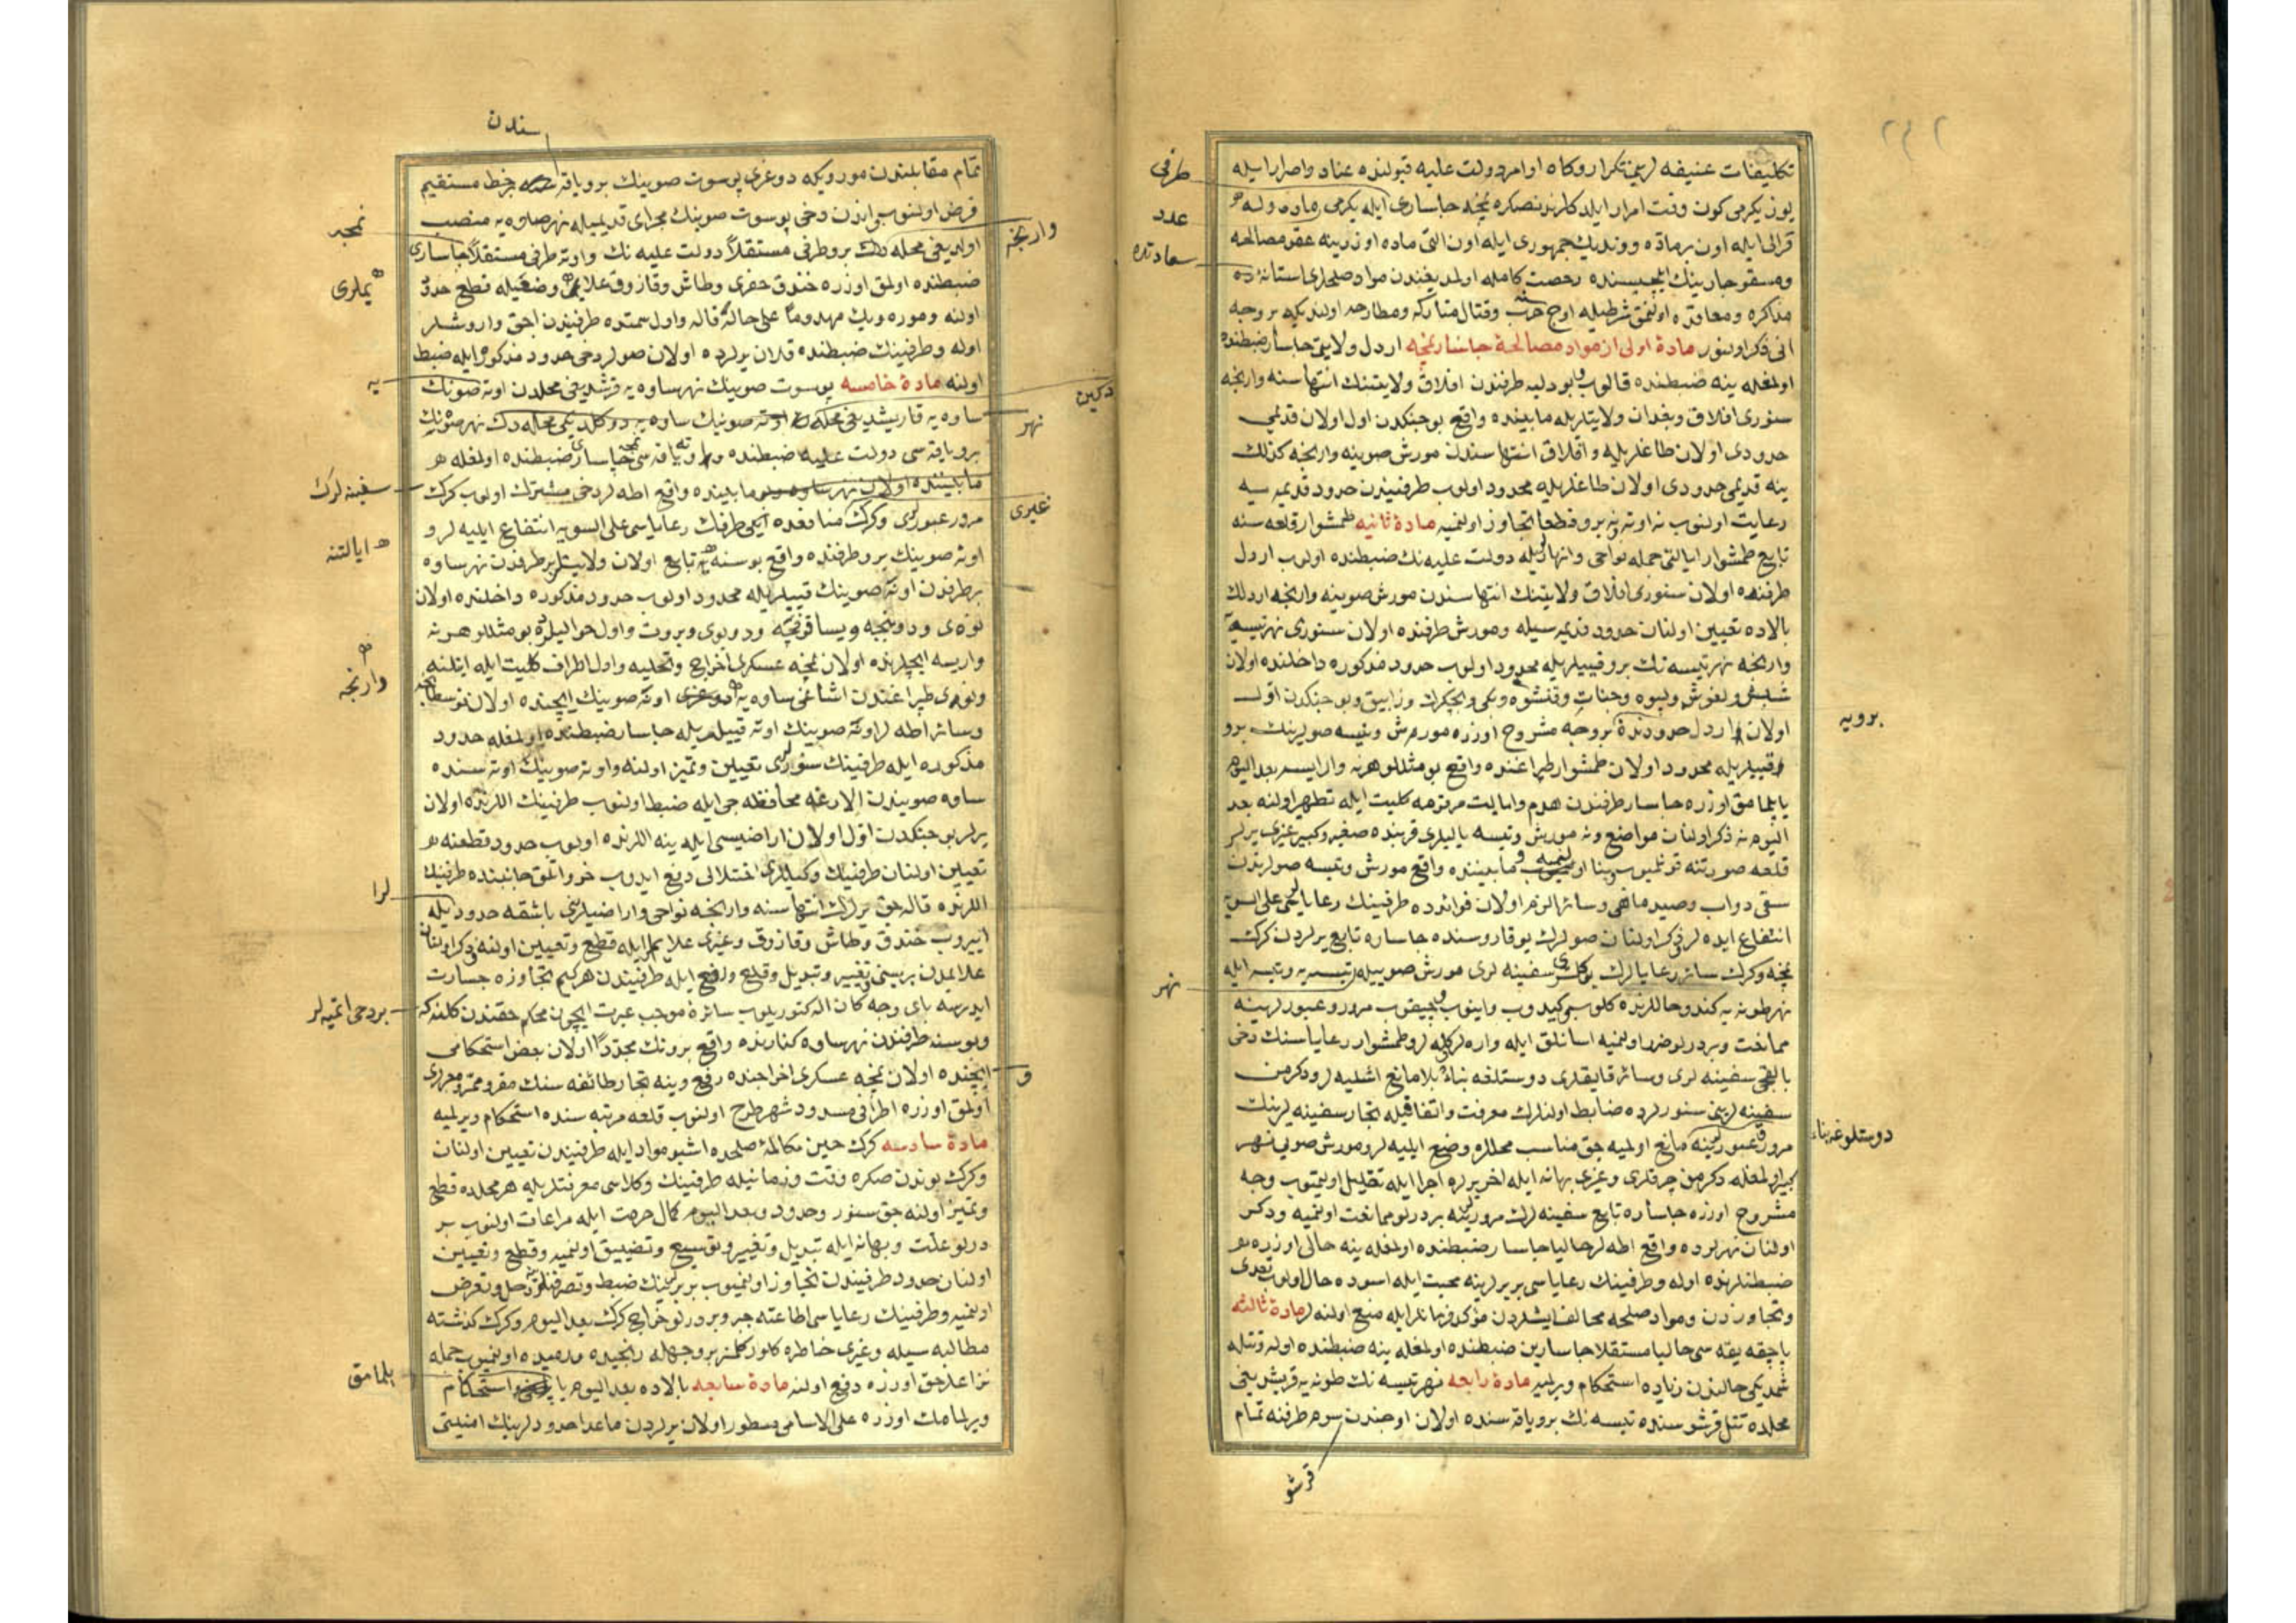 ٢٤٢
تكليفات عنيفه لرينى تكرار وكاه اوامر دولت عليه قبولنده عناد واصرار ايله
يوز يكرمى كون وقت امرار ايلدكلرندنصكره نمچه جاسارى ايله يكرمى ماده وله
قرالى ايله اون بر ماده وونديك جمهورى ايله اون التى ماده اوزرينه عقد مصالحه
ومسقو چارينك ايلچيسنده رخصت كامله اولمديغندن مواد صلحلرى استانه ده
مذاكره ومعاقده اولنمق شرطيله اوچ سنه حرب وقتال متاركه ومطارحه اولنديكه بر وجه
اتى ذكر اولنور مادۀ اولى از مواد مصالحۀ جاسار نمچه اردل ولايتى جاسار ضبطنده
اولمغله ينه ضبطنده قالوب وبودليه طرفندن افلاق ولايتنك انتهاسنه وارنجه
سنورى افلاق وبغدان ولايتلريله مابيننده واقع بو جنكدن اول اولان قديمى
حدودى اولان طاغلريله وافلاق انتهاسندن مورش صوينه وارنجه كذلك
ينه قديمى حدودى اولان طاغلريله محدود اولوب طرفيندن حدود قديمه سيه
رعايت اولنوب نه اوته ونه برو قطعا تجاوز اولنميه مادۀ ثانيه طمشوار قلعه سنه
تابع طمشوار ايالتى جمله نواحى وانهاريله دولت عليه نك ضبطنده اولوب اردل
طرفنده اولان سنورى افلاق ولايتنك انتهاسندن مورش صوينه وارنجه اردلك
بالاده تعيين اولنان حدود قديمه سيله ومورش طرفنده اولان سنورى نهر تيسه يه
وارنجه نهر تيسه نك برو قييلريله محدود اولوب حدود مذكوره داخلنده اولان
شبش ولغوش وليوه وجنات وقنشوه وبكى وبچكرك وزابيق وبو جنكدن اول
اولان اردل حدودنده بر وجه مشروح اوزره مورش وتيسه صولرينك برو
قييلريله محدود اولان طمشوار طپراغنده واقع بو مثللو هر نه وار ايسه بعد اليوم
ياپلمامق اوزره جاسار طرفندن هدم وايالت مرقومه كليت ايله تطهير اولنه بعد
اليوم نه ذكر اولنان مواضع ونه مورش وتيسه ياليلرى قربنده صغير وكبير غيرى يرلر
قلعه صورتنه قونلميوب بنا اولنميه ومابيننده واقع مورش وتيسه صولرندن
سقى دواب وصيد ماهى وسائر الزم اولان فوائدده طرفينك رعاياسى على السويه
انتفاع ايده لر ذكر اولنان صولرك يوقاروسنده جاساره تابع يرلردن كرك
نمچه وكرك سائر رعايالرك يوكلى سفينه لرى مورش صوييله تيسه يه وتيسه ايله
نهر طونه يه كندو حاللرنده كلوب كيدوب واينوب وچيقوب مرور وعبورلرينه
ممانعت وبر درلو ضرر اولنميه اسانلق ايله واره لر كله لر وطمشوار رعاياسنك دخى
بالقجى سفينه لرى وسائر قايقلرى دوستلغه بناءً بلا مانع اشليه لر ودكرمن
سفينه لرينى سنورلرده ضابط اولنلرك معرفت واتفاقيله تجار سفينه لرينك
مرور وعبورينه مانع اولميه جق مناسب محللره وضع ايليه لر ومورش صويى نهر
كبير اولمغله دكرمن چرقلرى وغيرى بهانه ايله اخر يره اجرا ايله تقليل اولنميوب وجه
مشروح اوزره جاساره تابع سفينه لرك مرورينه بر درلو ممانعت اولنميه وذكر
اولنان نهرلرده واقع اطه لر حاليا جاسار ضبطنده اولمغله ينه حالى اوزره
ضبطنلرنده اوله وطرفينك رعاياسى بربرلرينه محبت ايله اسوده حال اولوب تعدى
وتجاوزدن ومواد صلحه مخالف ايشلردن مؤكد فرمانلر ايله منع اولنه لر مادۀ ثالثه
باچقه يقه سى حاليا مستقلا جاسارين ضبطنده اولمغله ينه ضبطنده اوله وتتله
شمديكى حالندن زياده استحكام ويرلميه مادۀ رابعه نهر تيسه نك طونه يه قريشديغى
محلده تتل قرشوسنده تيسه نك برو ياقه سنده اولان اوجندن سرم طرفنه تمام
طرفى
عدد
سعادتده
برويه
نهر
دوستلوغه بناء
قرشو
تمام مقابلندن موروىكه دوغرى بوسوت صوينك برو ياقه بر خط مستقيم
فرض اولنوب واندن دخى بوسوت صوينك مجراى قديميله نهر صاوه يه منصب
اولديغى محله دك برو طرفى مستقلاً دولت عليه نك واوته طرفى مستقلاً جاسارى
ضبطنده اولمق اوزره خندق حفرى وطاش وقازوق علايمى وضعيله قطع حدود
اولنه وموره ويك مهدوماً على حاله قاله واول سمتده طرفيندن اچق واروشلر
اوله وطرفينك ضبطنده قلان يرلرده اولان صولر دخى حدود مذكوره ايله ضبط
اولنه مادۀ خامسه بوسوت صوينك نهر ساوه يه قرشديغى محلدن اونه صونك
ساوه يه قاريشديغى محله
برو ياقه سى دولت عليه ضبطنده واوته ياقه سى نمچه جاسارى ضبطنده اولمغله
مابيننده واقع اطه لر دخى مشترك اولوب كرك
مرور عبورى وكرك منافعده ايكى طرفك رعاياسى على السويه انتفاع ايليه لر و
اونه صوينك برو طرفنده واقع بوسنه يه تابع اولان ولايتلر بر طرفدن نهر ساوه
بر طرفدن اونه صوينك قييلريله محدود اولوب حدود مذكوره داخلنده اولان
نوى ودوبيچه ويسانوفچه ودوبوى وبروت واول حواليلرده بو مثللو هر نه
وار ايسه ايچلرنده اولان نمچه عسكرى اخراج وتخليه واول اطراف كليت ايله ايتلنه
ونوى طپراغندن اشاغى ساوه يه اونه صوينك ايچنده اولان نوسطانيچه
وسائر اطه لر اونه صوينك اوته قييلريله جاسار ضبطنده اولمغله حدود
مذكوره ايله طرفينك سنورى تعيين وتميز اولنه واونه صوينك اوته سنده
ساوه صويندن الارغه محافظه جى ايله ضبط اولنوب طرفينك اللرنده اولان
يرلر بو جنكدن اول اولان اراضيسى ايله ينه اللرنده اولوب حدود قطعنه
تعيين اولنان طرفينك وكيللرى اختلالى دفع ايدوب خرواتلق جانبنده طرفينك
اللرنده قاله جق يرلرك انتهاسنه وارنجه نواحى واراضيلرى باشقه حدود ايله
ايروب خندق وطاش وقازوق وغيرى علايملر ايله قطع وتعيين اولنه وذكر اولنان
علايمدن بريسنى تغيير وتبديل وقلع ورفع ايله طرفيندن هر كيم تجاوزه جسارت
ايدرسه باى وجه كان اله كتوريلوب سائره موجب عبرت ايچون محكم حقندن كلنه كه
وبوسنه طرفندن نهر ساوه كنارنده واقع برونك مجدداً اولان بعض استحكامى
ايچنده اولان نمچه عسكرى اخراجنده رفع وينه تجار طائفه سنك مقر وممرى
اولمق اوزره اطرافى مسدود شهر طرح اولنوب قلعه مرتبه سنده استحكام ويرلميه
مادۀ سادسه كرك حين مكالمۀ صلحده اشبو مواد ايله طرفيندن تعيين اولنان
وكرك بوندن صكره وقت وزمانيله طرفينك وكلاسى معرفتلريله هر محلده قطع
وتميز اولنه جق سنور وحدود وبعد اليوم كمال حرمت ايله مراعات اولنوب بر
درلو علت وبهانه ايله تبديل وتغيير وتوسيع وتضييق اولنميه وقطع وتعيين
اولنان حدود طرفيندن تجاوز اولنميوب بربرلرينك ضبط وتصرفلرينه دخل وتعرض
اولنميه وطرفينك رعاياسى اطاعته جبر وبر درلو خراج كرك بعد اليوم وكرك كذشته
مطالبه سيله وغيرى خاطره كلور كلمز بر وجهله رنجيده ورميده اولنميوب جمله
نزاعلر حق اوزره دفع اولنه مادۀ سابعه بالاده بعد اليوم استحكام
ويرلمامك اوزره على الاسامى مسطور اولان يرلردن ماعدا حدودلرينك امنيتى
سندن
وارنجه
نمچه
يملرى
يه
نهر
سفينه لرك
غيرى
ايالتنه
وارنجه
لرا
بر دخى ايتميه لر
و
يلمامق